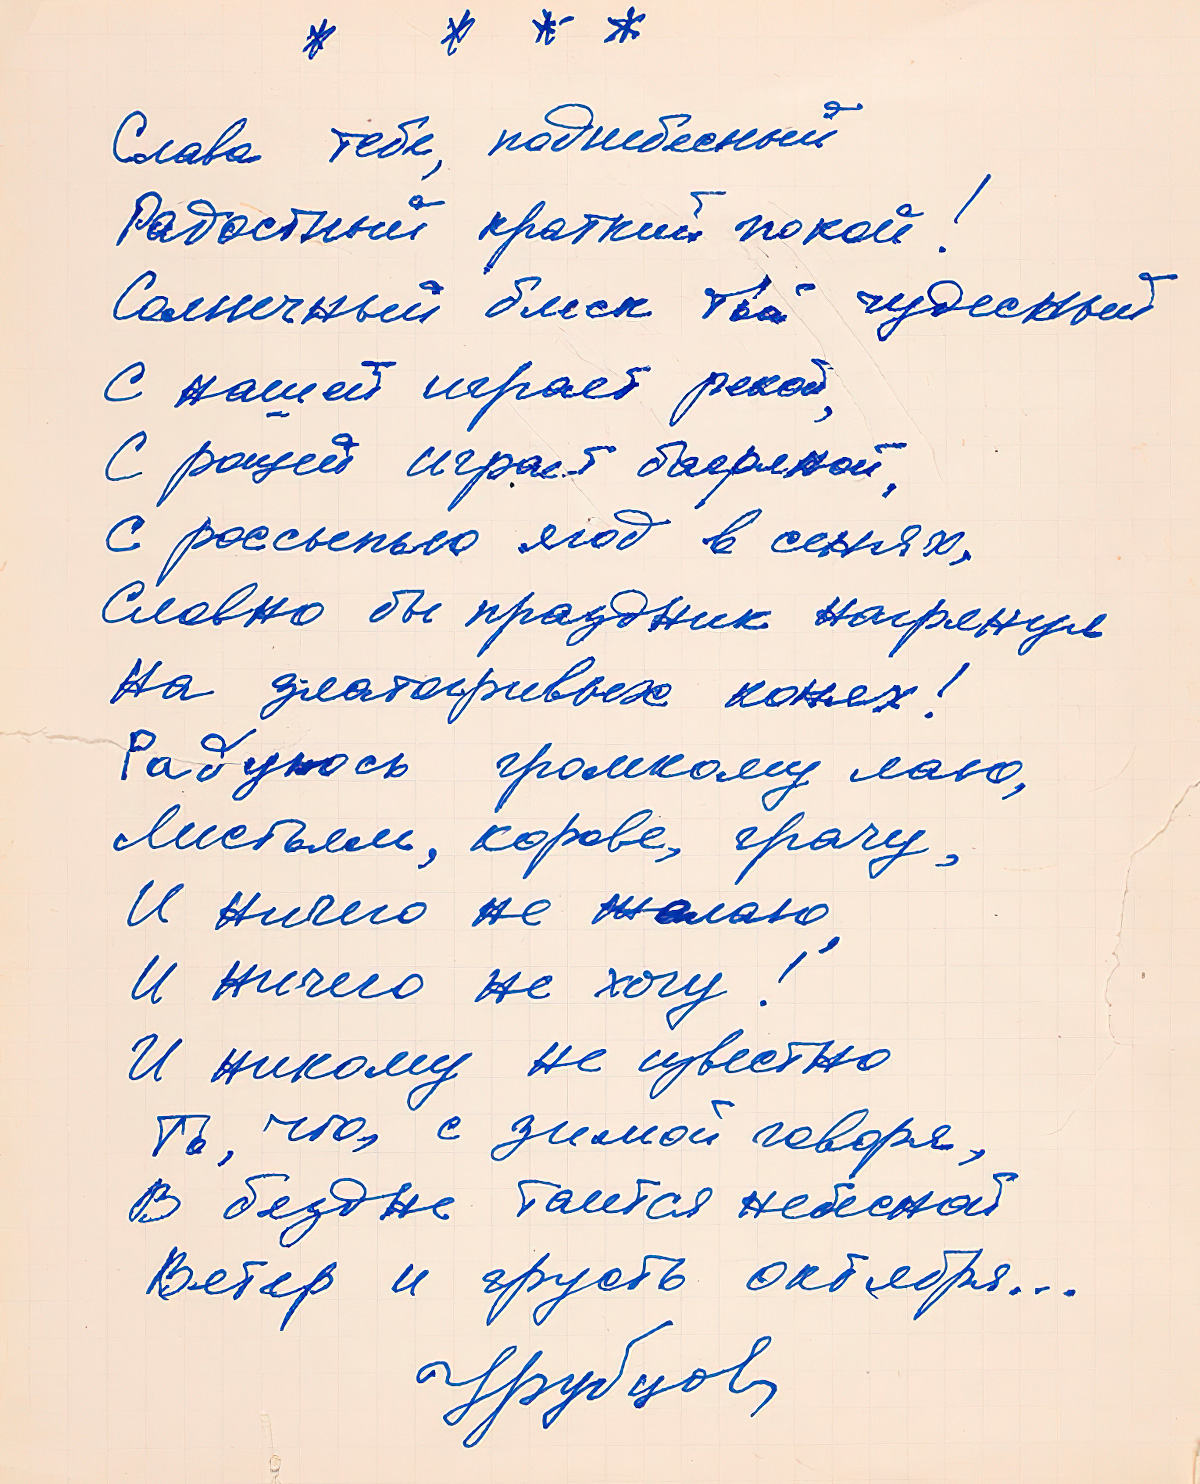 * * * *
Слава тебе, поднебесный
Радостный краткий покой!
Солнечный блеск твой чудесный
С нашей играет рекой,
С рощей играет багряной,
С россыпью ягод в сенях,
Словно бы праздник нагрянул
На златогривых конях!
Радуюсь громкому лаю,
Листьям, корове, грачу,
И ничего не желаю,
И ничего не хочу!
И никому не известно
То, что, с зимой говоря,
В бездне таится небесной
Ветер и грусть октября...
Н Рубцов